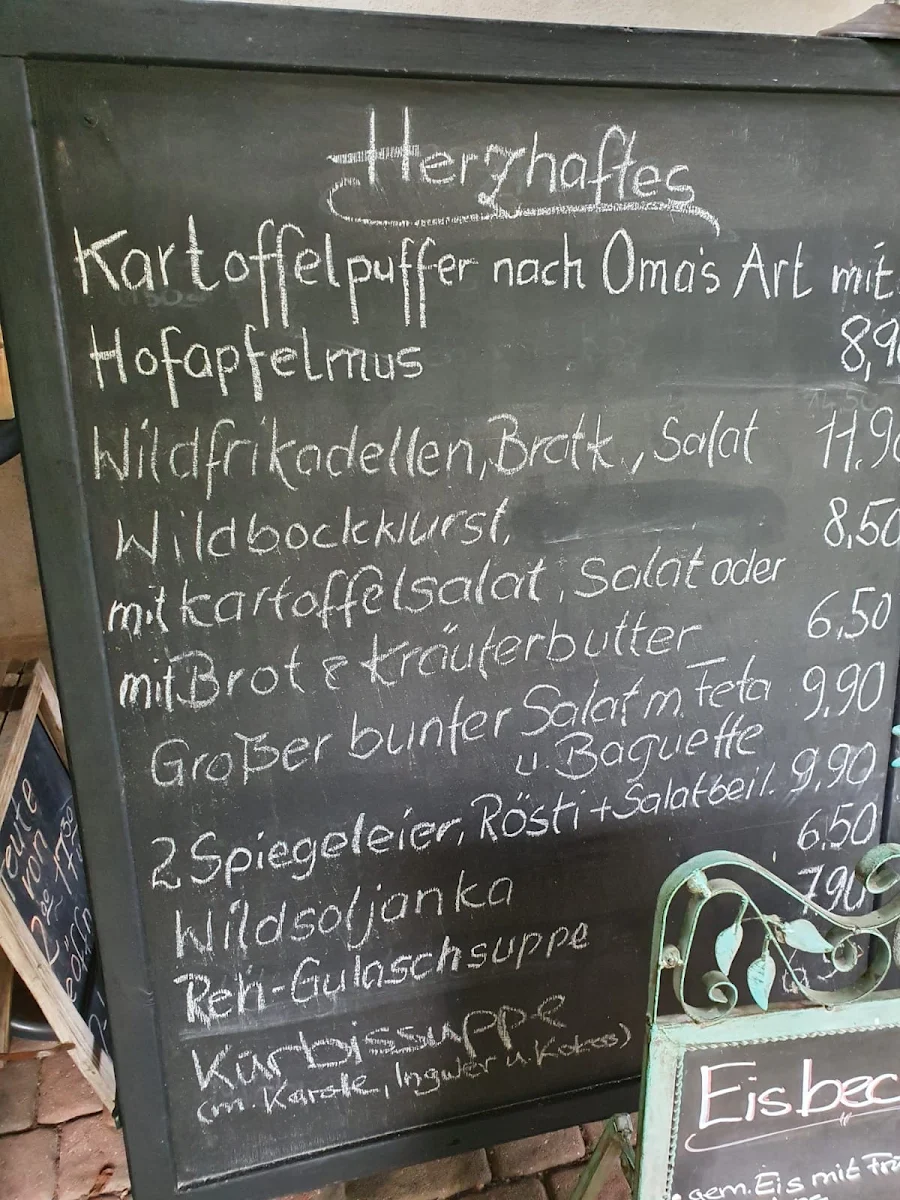 Herzhaftes
Kartoffelpuffer nach Oma's Art mit
Hofapfelmus 8,90
Wildfrikadellen, Bratk., Salat 11.90
Wildbockwurst, 8,50
mit Kartoffelsalat, Salat oder
mit Brot & Kräuterbutter 6,50
Großer bunter Salat m. Feta 9,90
u. Baguette
2 Spiegeleier, Rösti + Salatbeil. 9,90
Wildsoljanka 6,50
Reh-Gulaschsuppe 7,90
Kürbissuppe
(m. Karotte, Ingwer u. Kokos)
Eisbec
gem. Eis mit Frü